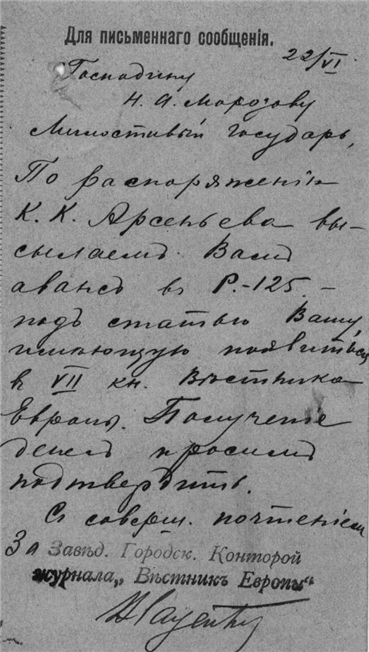 Для письменнаго сообщенія.
22/VI
Господину
Н. А. Морозову
Милостивый Государь,
По распоряженію
К. К. Арсеньева вы-
сылаемъ Вамъ
авансъ въ Р.-125.-
подъ статью Вашу,
имѣющую появиться
въ VII кн. Вѣстника
Европы. Полученіе
денегъ просимъ
подтвердить.
Съ соверш. почтеніемъ
За Завѣд. Городск. Конторой
журнала „Вѣстникъ Европы"